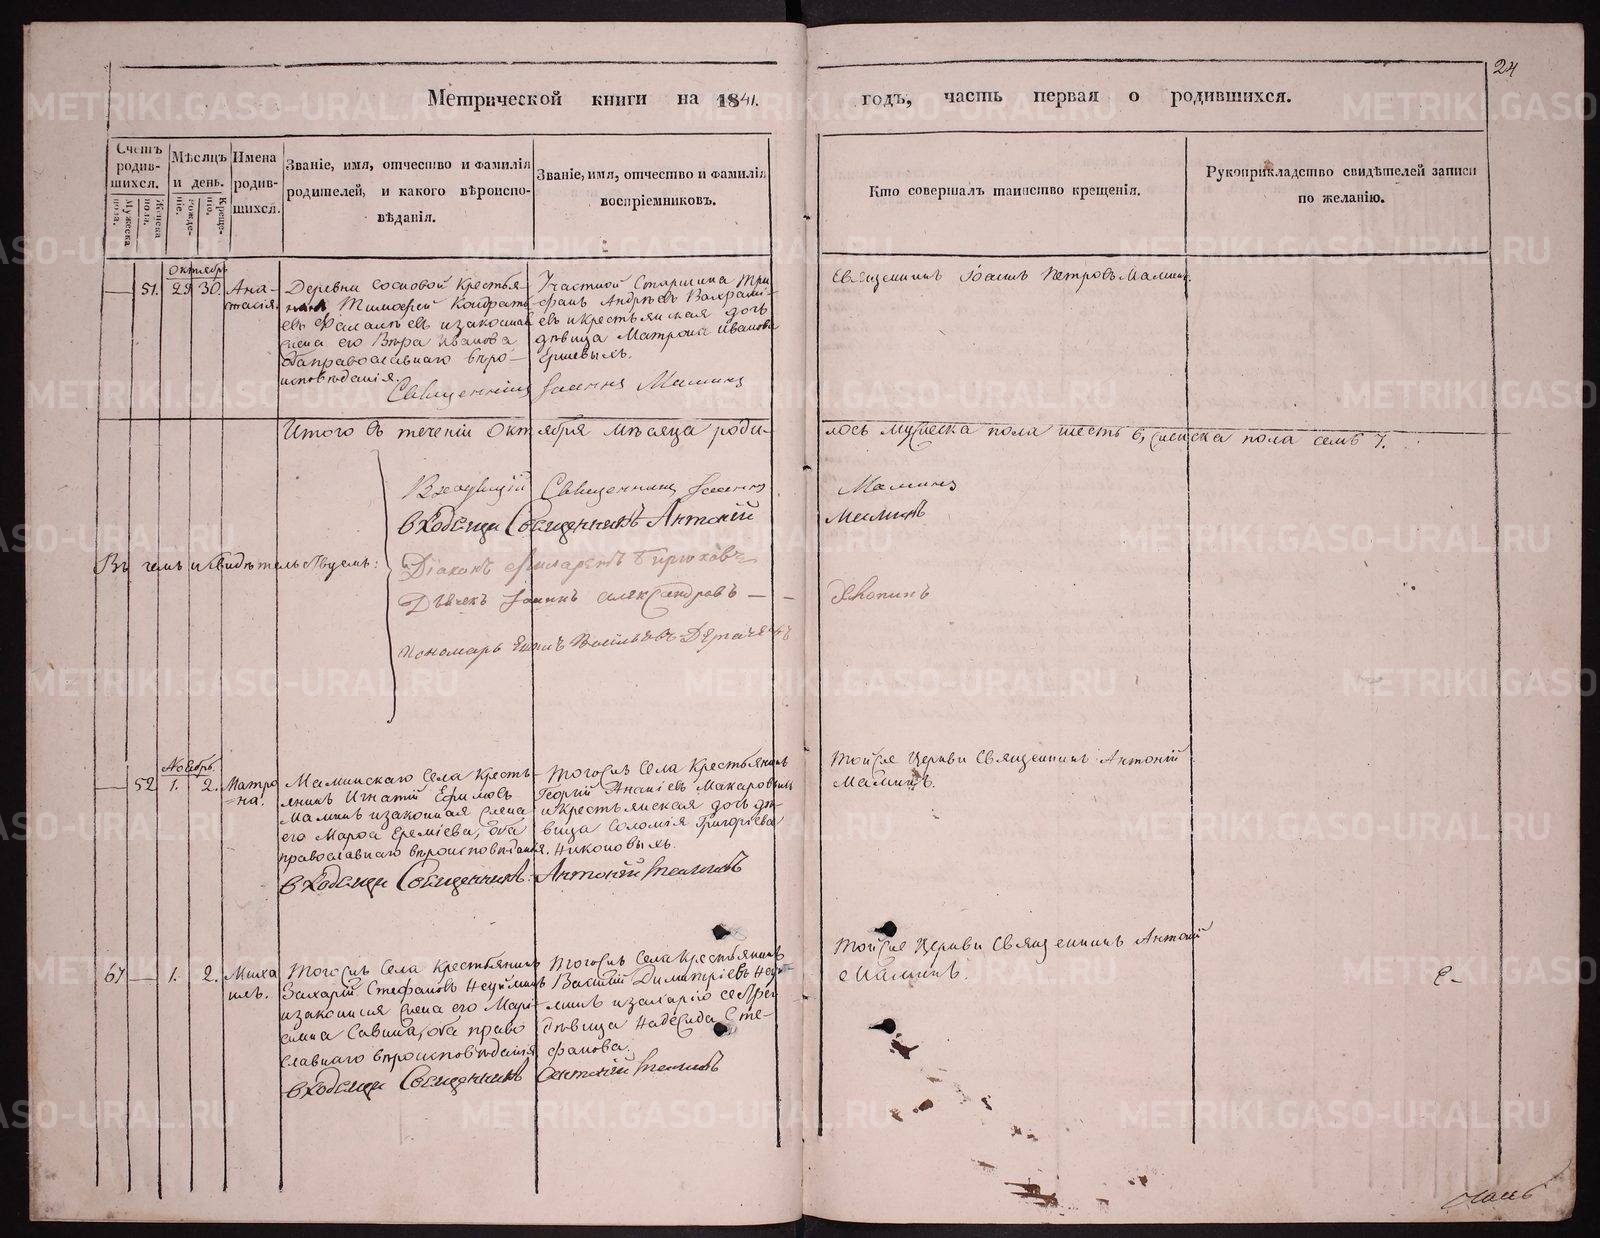 24
Метрической книги на 1841. годъ, часть первая о родившихся.
Счетъ родившихся.
Мужеска пола.
Женска пола.
Мѣсяцъ и день.
Рожденіе.
Крещеніе.
Имена родившихся.
Званіе, имя, отчество и фамилія
родителей, и какого вѣроиспо-
вѣданія.
Званіе, имя, отчество и фамилія
воспріемниковъ.
Кто совершалъ таинство крещенія.
Рукоприкладство свидѣтелей записи
по желанію.
Октябрь
51. 29 30. Ана-
стасія.
Деревни Сосновой Крестья-
нинъ Тимофей Кондрать
евъ изаконная
жена его Вѣра Иванова
оба православнаго вѣро-
исповѣданія.
Участной Старшина Три
фанъ Андрѣевъ
евъ икрестьянская дочь
дѣвица Матрона Иванова
Священникъ Іоаннъ Петровъ Маминъ.
Священникъ Іоаннъ Маминъ
Итого въ теченіи Октября мѣсяца роди-
лось мужеска пола шесть 6, женска пола семь 7.
Въ чемъ и свидѣтельствуемъ:
Священникъ Іоаннъ Маминъ
Священникъ Антоній Маминъ
Діаконъ Филаретъ Бирюковъ
Дьячекъ Іоаннъ Александровъ — —
Пономарь
Ноябрь
52 1. 2. Матро
на.
Маминскаго Села Кресть-
янинъ Игнатій Ефимовъ
Маминъ изаконная жена
его Марѳа Еремѣева, оба
православнаго вѣроисповѣданія.
Тогожъ Села Крестьянинъ
Георгій Ананіевъ Макаровыхъ
икрестьянская дочь дѣ-
вица Соломія Григорьева
Никоновыхъ.
Тойже Церкви Священникъ Антоній
Маминъ.
Священникъ Антоній Маминъ
67 — 1. 2. Миха
илъ.
Тогожъ Села Крестьянинъ
Захарій Стефановъ
изаконная жена его Марі-
Савина, оба право
славнаго вѣроисповѣданія
Тогожъ Села Крестьянинъ
Василій Димитріевъ
дѣвица Надежда Сте-
фанова.
Тойже Церкви Священникъ Антоній
Маминъ.
Священникъ Антоній Маминъ
METRIKI.GASO-URAL.RU